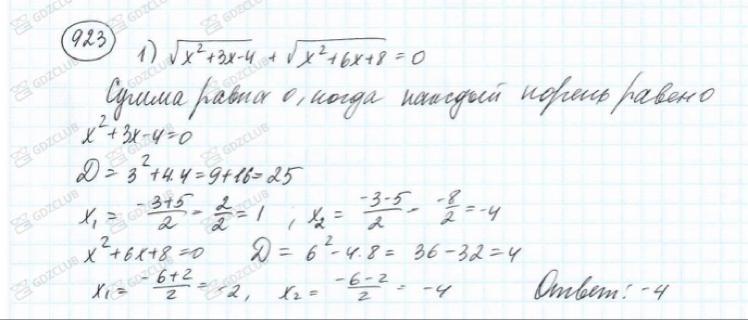 923
1) √x²+3x-4 + √x²+6x+8 = 0
Сумма равна 0, когда каждый корень равен 0
x²+3x-4=0
D = 3²+4·4=9+16=25
x₁ = -3+5/2 = 2/2 = 1, x₂ = -3-5/2 = -8/2 = -4
x²+6x+8=0 D = 6²-4·8 = 36-32=4
x₁ = -6+2/2 = -2, x₂ = -6-2/2 = -4 Ответ: -4
GDZCLUB